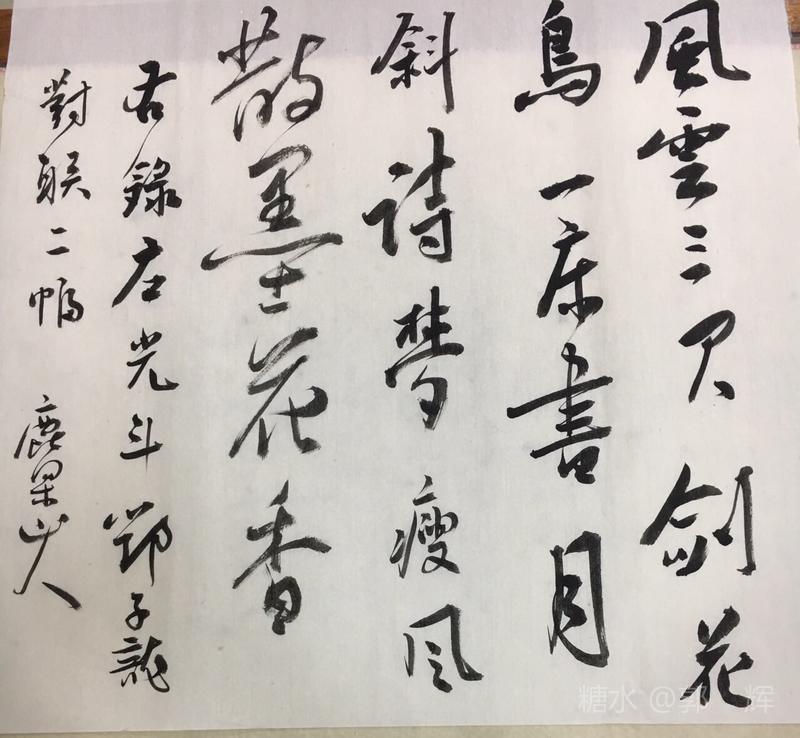 風雲三尺劍花
鳥一床書月
斜詩夢瘦風
散墨花香
右錄左光斗鄧子龍
對联二幅
鹿果山人
糖水 @郭一辉